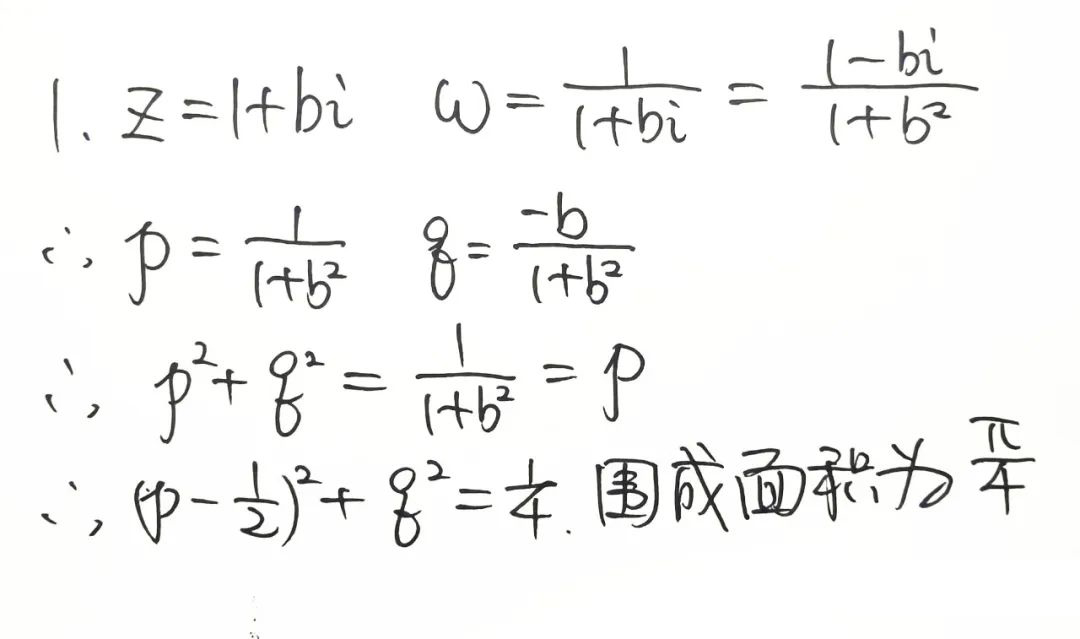 1. z=1+bi ω=1/(1+bi)=(1-bi)/(1+b²)
∴ p=1/(1+b²) q=-b/(1+b²)
∴ p²+q²=1/(1+b²)=p
∴ (p-1/2)²+q²=1/4. 围成面积为π/4